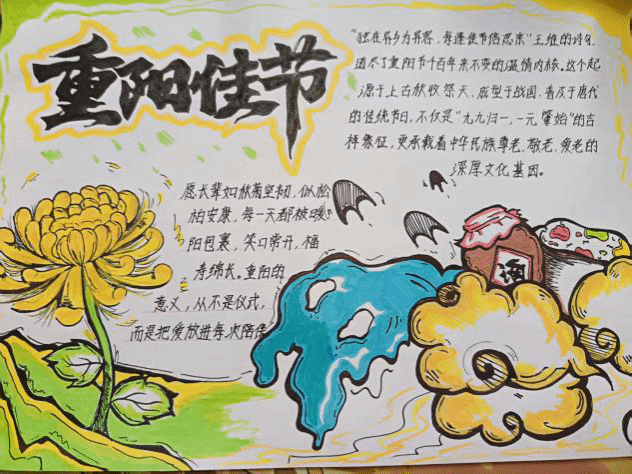 重阳佳节
"独在异乡为异客，每逢佳节倍思亲"王维的诗句，
道尽了重阳节千百年来不变的温情内核。这个起
源于上古秋收祭天、成型于战国、普及于唐代
的传统节日，不仅是"九九归一，一元肇始"的吉
祥象征，更承载着中华民族尊老、敬老、爱老的
深厚文化基因。
愿长辈如秋菊坚韧，似松
柏安康，每一天都被暖
阳包裹，笑口常开，福
寿绵长。重阳的
意义，从不是仪式，
而是把爱放进每次陪伴
酒